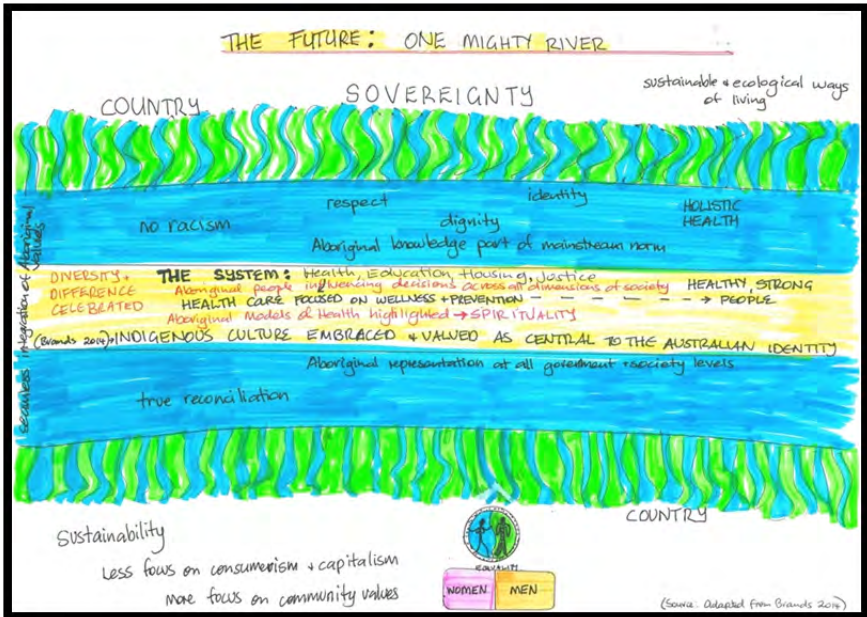 THE FUTURE: ONE MIGHTY RIVER
COUNTRY
SOVEREIGNTY
sustainable + ecological ways
of living
respect
identity
no racism
dignity
HOLISTIC
HEALTH
Aboriginal knowledge part of mainstream norm
seamless integration of Aboriginal
values
DIVERSITY +
DIFFERENCE
CELEBRATED
THE SYSTEM: Health, Education, Housing, Justice
Aboriginal people influencing decisions across all dimensions of society
HEALTH CARE FOCUSED ON WELLNESS + PREVENTION – – – – – →
HEALTHY, STRONG
PEOPLE
Aboriginal Models of Health highlighted → SPIRITUALITY
(Brands 2014) → INDIGENOUS CULTURE EMBRACED + VALUED AS CENTRAL TO THE AUSTRALIAN IDENTITY
Aboriginal representation at all government + society levels
true reconciliation
COUNTRY
Sustainability
Less focus on consumerism + capitalism
more focus on community values
EQUALITY
WOMEN
MEN
(Source: Adapted from Brands 2014)